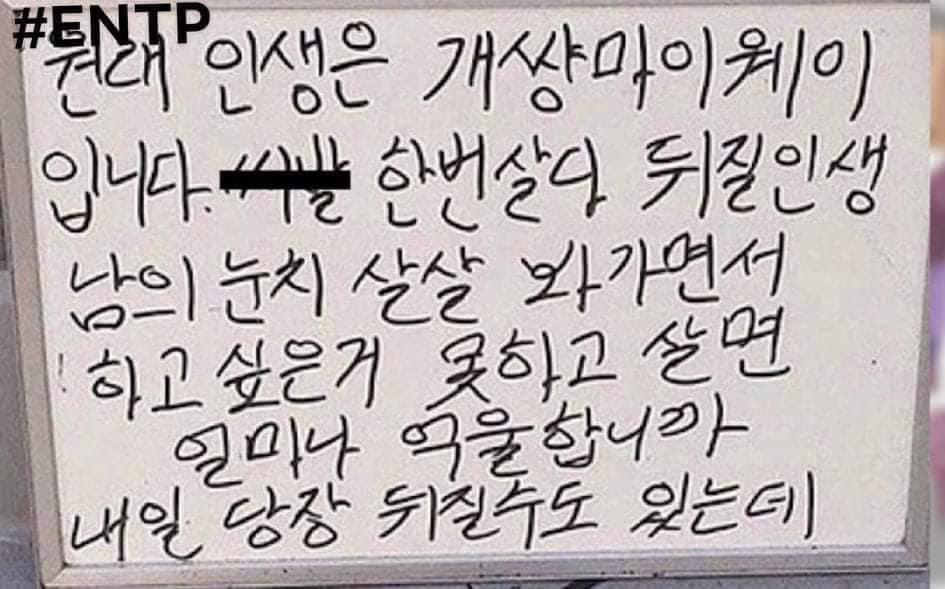 #ENTP
원래 인생은 개썅마이웨이
입니다. 한번살다 뒤질인생
남의 눈치 살살 봐가면서
하고 싶은거 못하고 살면
얼마나 억울합니까
내일 당장 뒤질수도 있는데